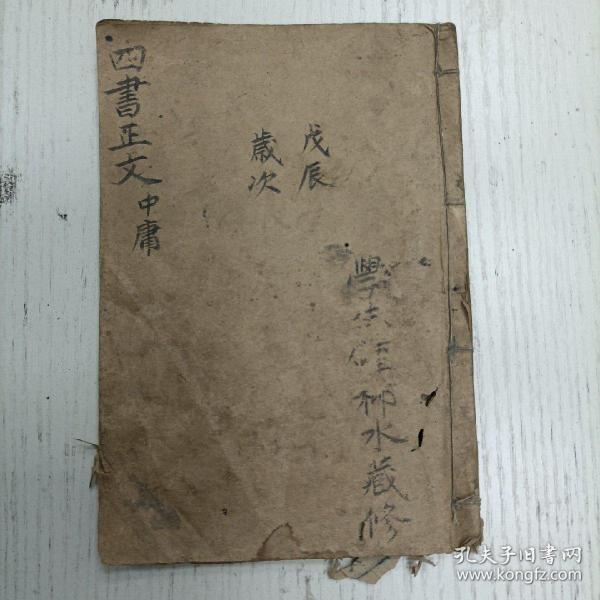 四書正文 中庸
戊辰
歲次
學生程柳水藏修
孔夫子旧书网
www.kongfz.com